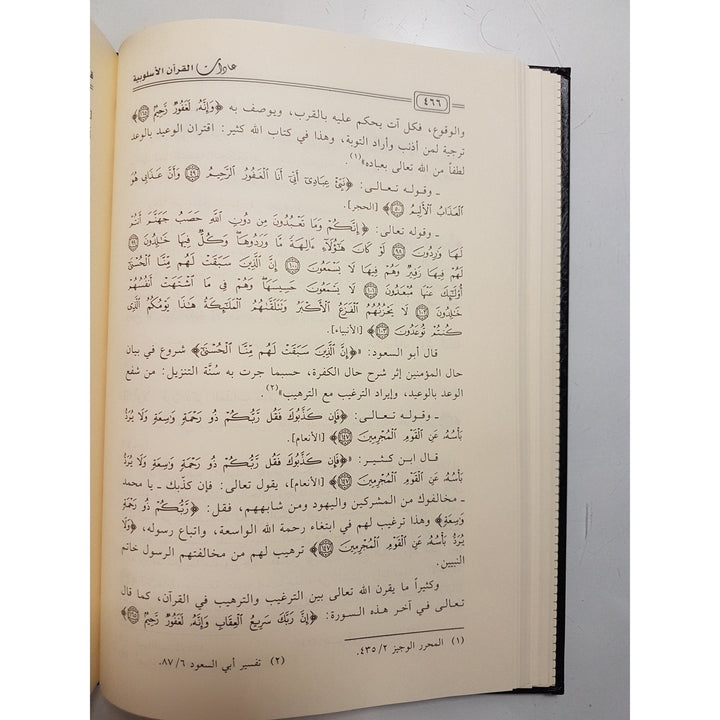 عادات القرآن الأسلوبية
٤٦٦
والوقوع، فكل آت يحكم عليه بالقرب، ويوصف به ﴿وَإِنَّهُۥ لَغَفُورٌ رَّحِيمٌ ١٦٥﴾
ترجية لمن أذنب وأراد التوبة، وهذا في كتاب الله كثير: اقتران الوعيد بالوعد
لطفاً من الله تعالى بعباده»(١).
ـ وقوله تعالى: ﴿نَبِّئْ عِبَادِىٓ أَنِّىٓ أَنَا ٱلْغَفُورُ ٱلرَّحِيمُ ٤٩ وَأَنَّ عَذَابِى هُوَ
ٱلْعَذَابُ ٱلْأَلِيمُ ٥٠﴾ [الحجر].
ـ وقوله تعالى: ﴿إِنَّكُمْ وَمَا تَعْبُدُونَ مِن دُونِ ٱللَّهِ حَصَبُ جَهَنَّمَ أَنتُمْ
لَهَا وَٰرِدُونَ ٩٨ لَوْ كَانَ هَٰٓؤُلَآءِ ءَالِهَةً مَّا وَرَدُوهَا ۖ وَكُلٌّ فِيهَا خَٰلِدُونَ ٩٩
لَهُمْ فِيهَا زَفِيرٌ وَهُمْ فِيهَا لَا يَسْمَعُونَ ١٠٠ إِنَّ ٱلَّذِينَ سَبَقَتْ لَهُم مِّنَّا ٱلْحُسْنَىٰٓ
أُو۟لَٰٓئِكَ عَنْهَا مُبْعَدُونَ ١٠١ لَا يَسْمَعُونَ حَسِيسَهَا ۖ وَهُمْ فِى مَا ٱشْتَهَتْ أَنفُسُهُمْ
خَٰلِدُونَ ١٠٢ لَا يَحْزُنُهُمُ ٱلْفَزَعُ ٱلْأَكْبَرُ وَتَتَلَقَّىٰهُمُ ٱلْمَلَٰٓئِكَةُ هَٰذَا يَوْمُكُمُ ٱلَّذِى
كُنتُمْ تُوعَدُونَ ١٠٣﴾ [الأنبياء].
قال أبو السعود: «﴿إِنَّ ٱلَّذِينَ سَبَقَتْ لَهُم مِّنَّا ٱلْحُسْنَىٰٓ﴾ شروع في بيان
حال المؤمنين إثر شرح حال الكفرة، حسبما جرت به سُنَّة التنزيل: من شفع
الوعد بالوعيد، وإيراد الترغيب مع الترهيب»(٢).
ـ وقوله تعالى: ﴿فَإِن كَذَّبُوكَ فَقُل رَّبُّكُمْ ذُو رَحْمَةٍ وَٰسِعَةٍ وَلَا يُرَدُّ
بَأْسُهُۥ عَنِ ٱلْقَوْمِ ٱلْمُجْرِمِينَ ١٤٧﴾ [الأنعام].
قال ابن كثير: «﴿فَإِن كَذَّبُوكَ فَقُل رَّبُّكُمْ ذُو رَحْمَةٍ وَٰسِعَةٍ وَلَا يُرَدُّ
بَأْسُهُۥ عَنِ ٱلْقَوْمِ ٱلْمُجْرِمِينَ ١٤٧﴾ [الأنعام]، يقول تعالى: فإن كذّبك ـ يا محمد
ـ مخالفوك من المشركين واليهود ومن شابههم، فقل: ﴿رَّبُّكُمْ ذُو رَحْمَةٍ
وَٰسِعَةٍ﴾ وهذا ترغيب لهم في ابتغاء رحمة الله الواسعة، واتباع رسوله، ﴿وَلَا
يُرَدُّ بَأْسُهُۥ عَنِ ٱلْقَوْمِ ٱلْمُجْرِمِينَ ١٤٧﴾ ترهيب لهم من مخالفتهم الرسول خاتم
النبيين.
وكثيراً ما يقرن الله تعالى بين الترغيب والترهيب في القرآن، كما قال
تعالى في آخر هذه السورة: ﴿إِنَّ رَبَّكَ سَرِيعُ ٱلْعِقَابِ وَإِنَّهُۥ لَغَفُورٌ رَّحِيمٌ ١٦٥﴾
(١) المحرر الوجيز ٢/ ٤٣٥.
(٢) تفسير أبي السعود ٦/ ٨٧.